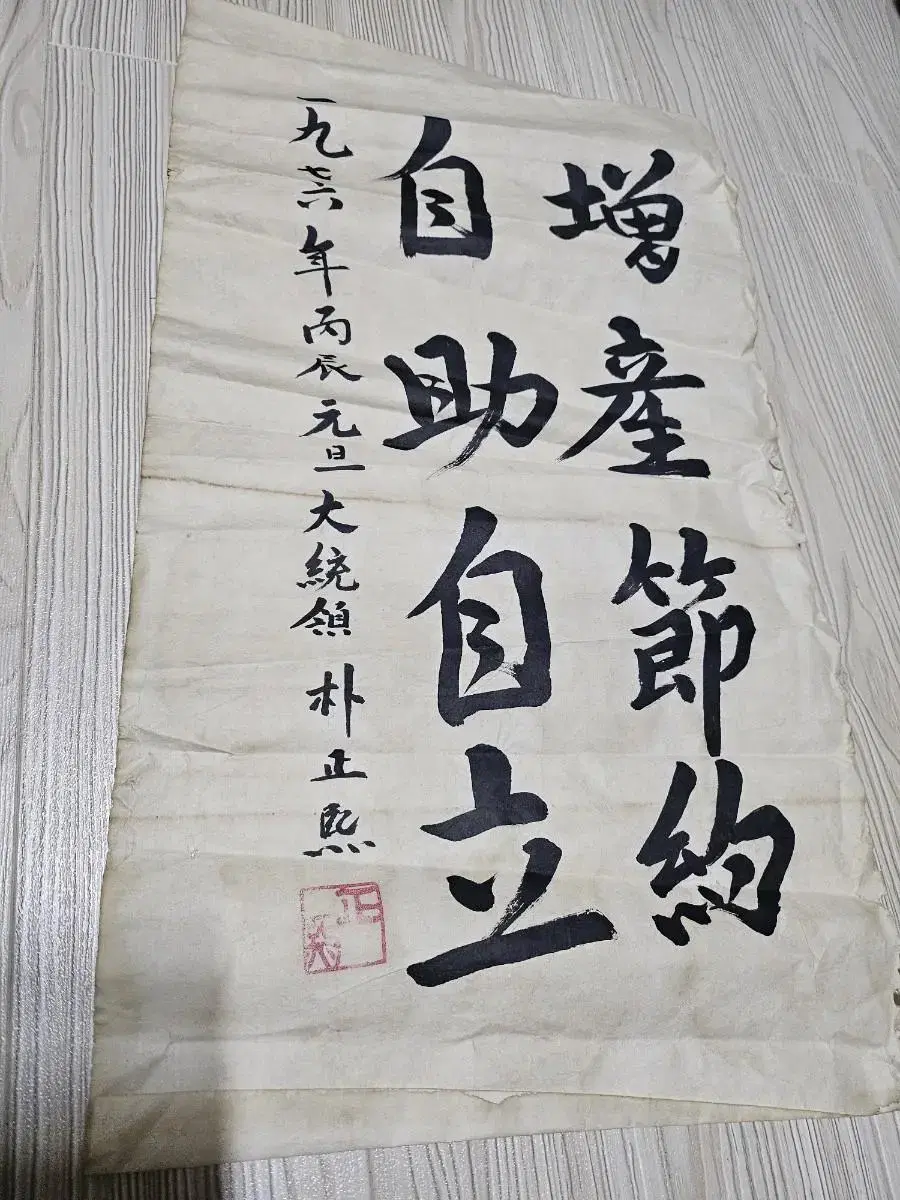 增產節約
自助自立
一九七六年丙辰元旦大統領 朴正熙
正熙